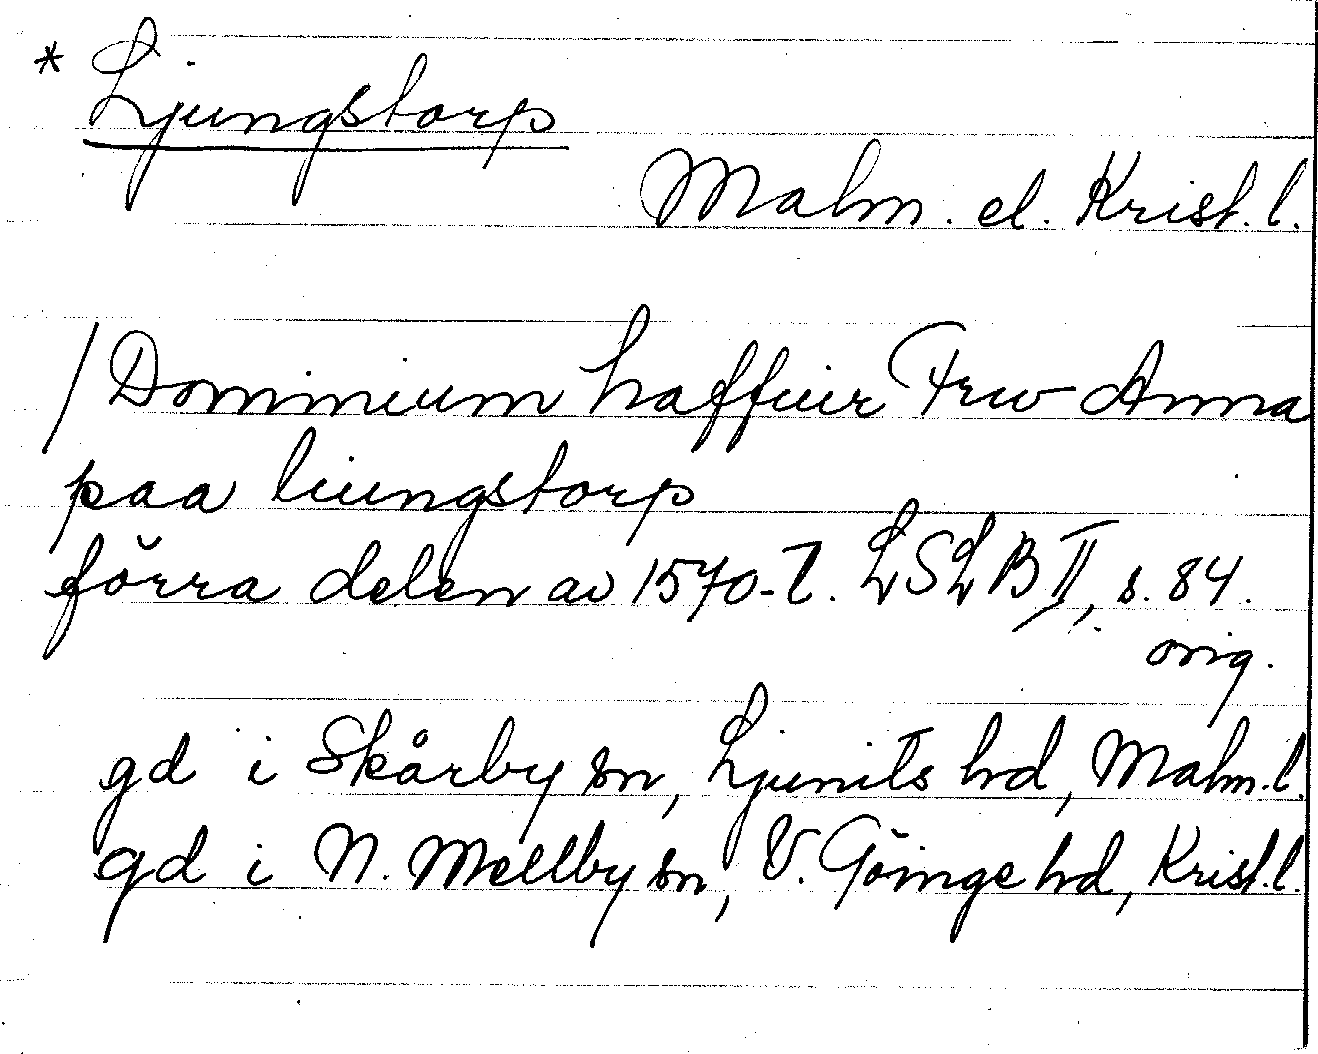 * Ljungstorp
Malm. el. Krist. l.
/ Dominium haffuer Frw Anna
paa liungstorp
förra delen av 1570-t. LSLB II, s. 84.
orig.
gd i Skårby sn, Ljunits hd, Malm. l.
gd i N. Mellby sn, V. Göinge hd, Krist. l.